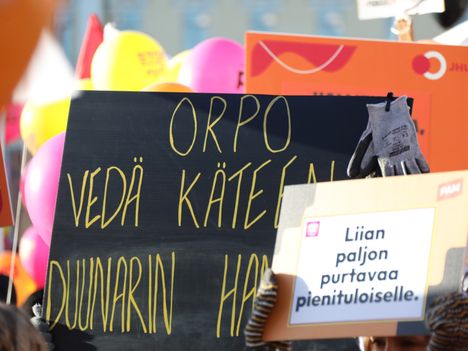 ORPO
VEDÄ KÄTEEN
DUUNARIN
JHL
PAM
Liian
paljon
purtavaa
pienituloiselle.